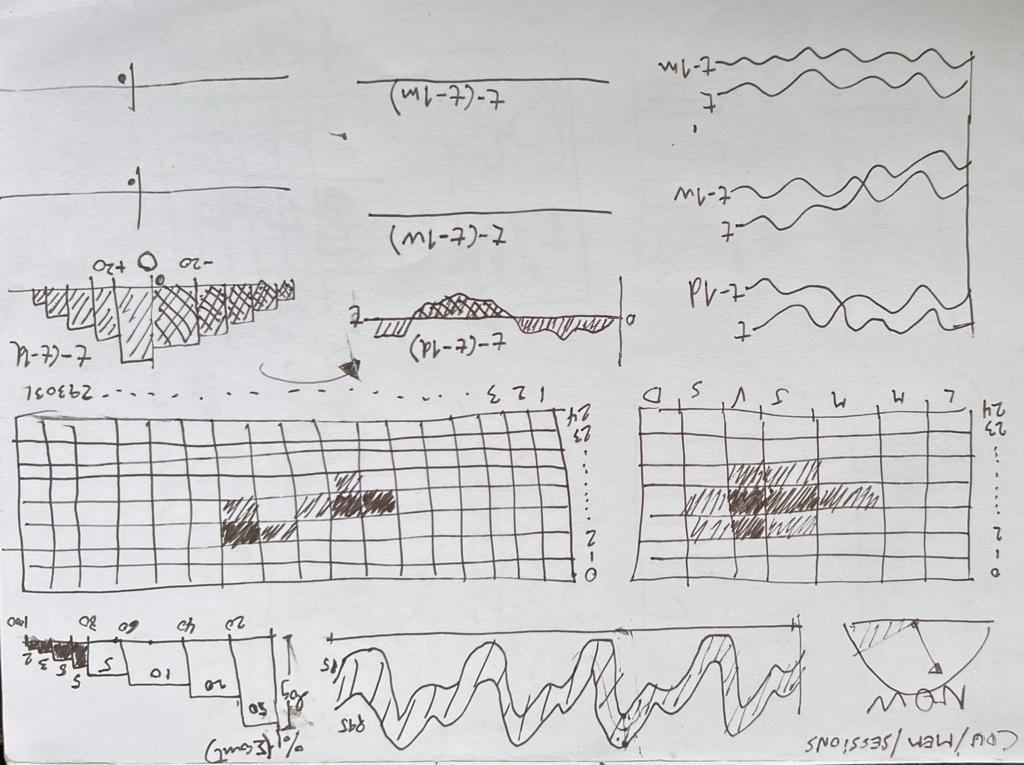 CPU/MEM/SESSIONS
NOW
P95
P5
% (Σcount)
log
50 20 10 5 5 5 3 2
20 40 60 80 100
0
1
2
23
24
L M M J V S D
0
1
2
23
24
1 2 3 . . . . . . . . 29 30 31
t
t-1d
t-(t-1d)
0 t
t-(t-1d
-20 0 +20
t
t-1w
t-(t-1w)
t
t-1m
t-(t-1m)